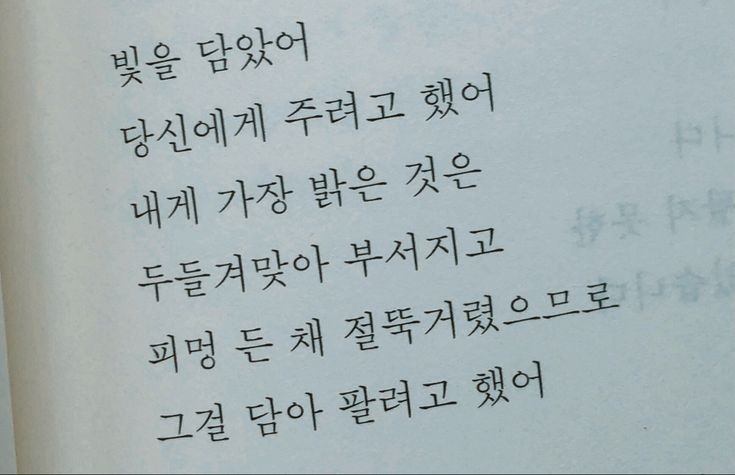 빛을 담았어
당신에게 주려고 했어
내게 가장 밝은 것은
두들겨맞아 부서지고
피멍 든 채 절뚝거렸으므로
그걸 담아 팔려고 했어